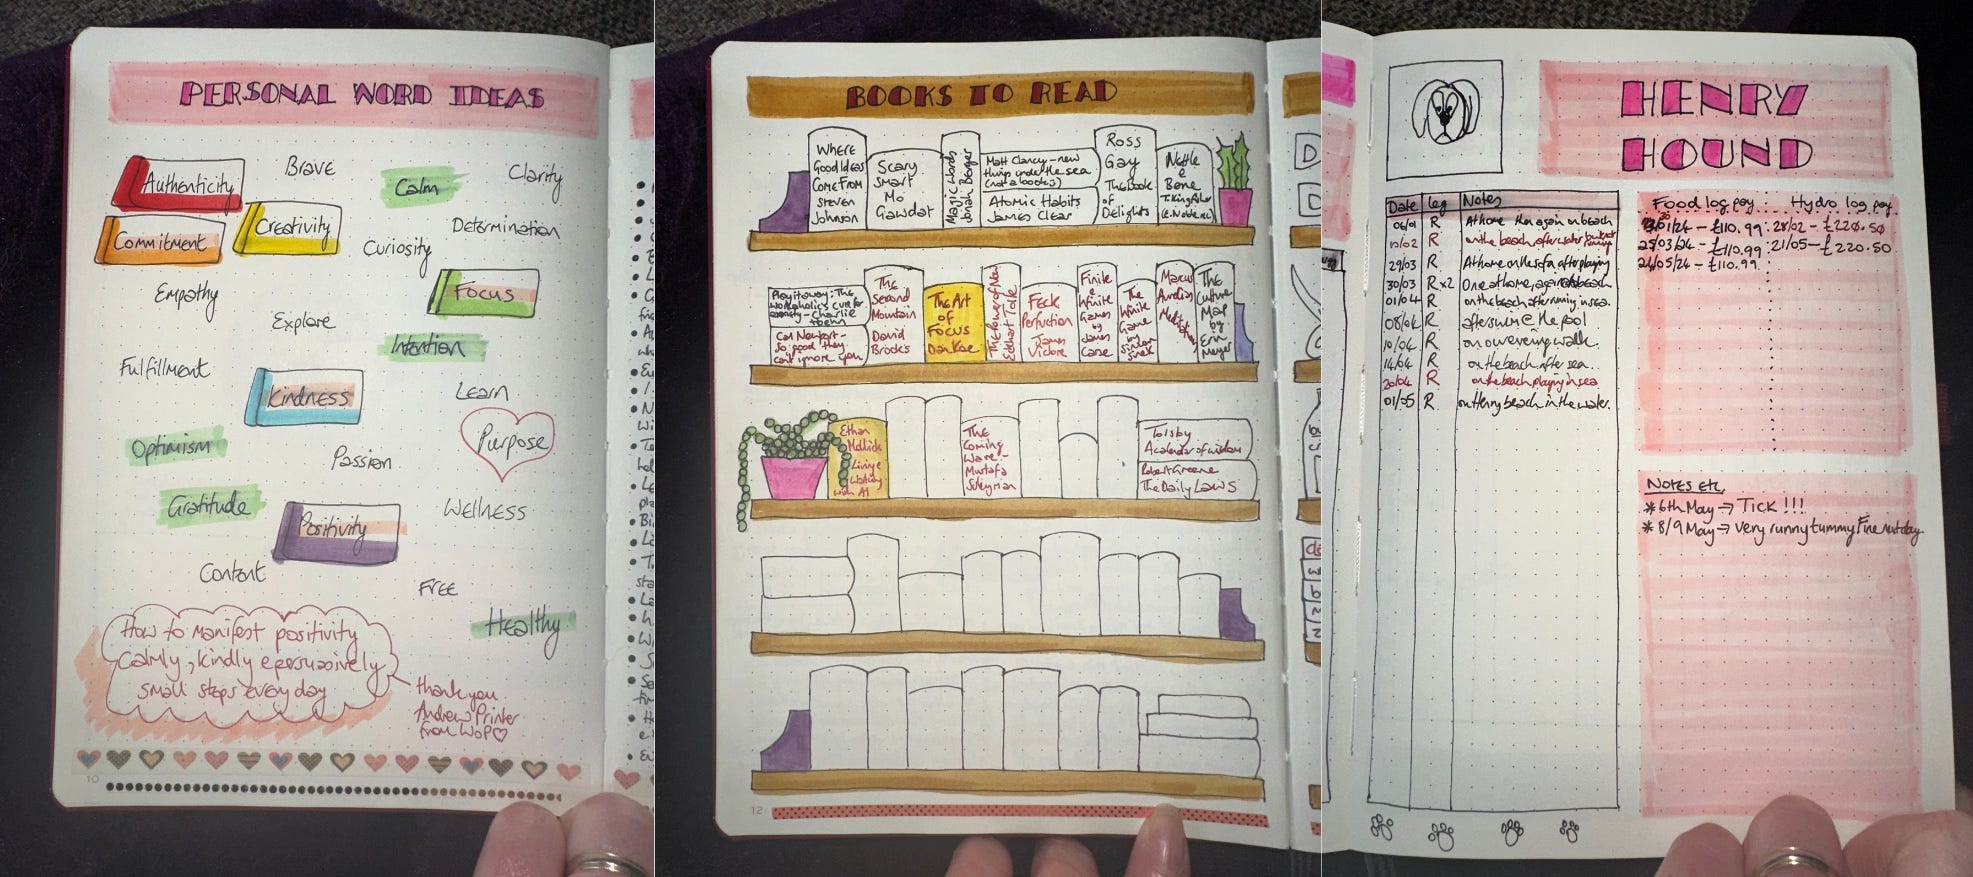 PERSONAL WORD IDEAS
Authenticity
Brave
Calm
Clarity
Commitment
Creativity
Curiosity
Determination
Empathy
Focus
Explore
Intention
Fulfillment
Kindness
Learn
Purpose
Optimism
Passion
Gratitude
Positivity
Wellness
Content
Free
Healthy
How to manifest positivity
calmly, kindly & persuasively
small steps every day
thank you
Andrew Printer
from WoP
10
BOOKS TO READ
Where
Good Ideas
Come From
Steven
Johnson
Scary
Smart
Mo
Gawdat
Magic Words
Jonah Berger
Matt Clancy - new
things under the sea
(not a book:))
Atomic Habits
James Clear
Ross
Gay
The Book
of
Delights
Nettle
&
Bone
T. Kingfisher
Play it away: The
workaholic's cure for
anxiety - Charlie
Hoehn
Cal Newport -
So good they
can't ignore you
The
Second
Mountain
David
Brooks
The Art
of
Focus
Dan Koe
The Power of Now
Eckhart Tolle
Feck
Perfuction
James
Victore
Finite
&
Infinite
Games
by
James
Carse
The
Infinite
Game
by
Simon
Sinek
Marcus
Aurelius
Meditations
The
Culture
Map
by
Erin
Meyer
Ethan
Mollick
Living &
Working
with AI
The
Coming
Wave -
Mustafa
Suleyman
Tolstoy
A calendar of wisdom
Robert Greene
The Daily Laws
12
HENRY
HOUND
Date Leg Notes
06/01 R At home then again on beach
10/02 R on the beach, after water
29/03 R At home on the sofa, after playing
30/03 R x2 One at home, again beach
01/04 R on the beach after running in sea.
08/04 R after swim @ the pool
10/04 R on our evening walk.
14/04 R on the beach after sea..
20/04 R on the beach playing in sea
01/05 R on Henry beach in the water.
Food log pay: Hydro log pay
01/24 - £110.99: 28/02 - £220.50
25/03/24 - £110.99: 21/05 - £220.50
24/05/24 - £110.99
Notes etc.
* 6th May → Tick !!!
* 8/9 May → very runny tummy Fine next day